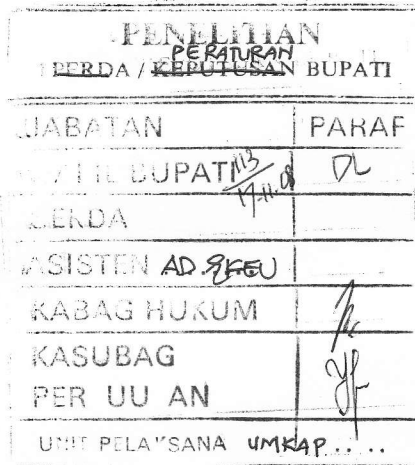 PENELITIAN
PERATURAN
PERDA / KEPUTUSAN BUPATI
JABATAN PARAF
BUPATI 113 / 17-11-08 DL
SEKDA
ASISTEN AD. & KEU
KABAG HUKUM
KASUBAG
PER UU AN
UNIT PELAKSANA UMKAP.....